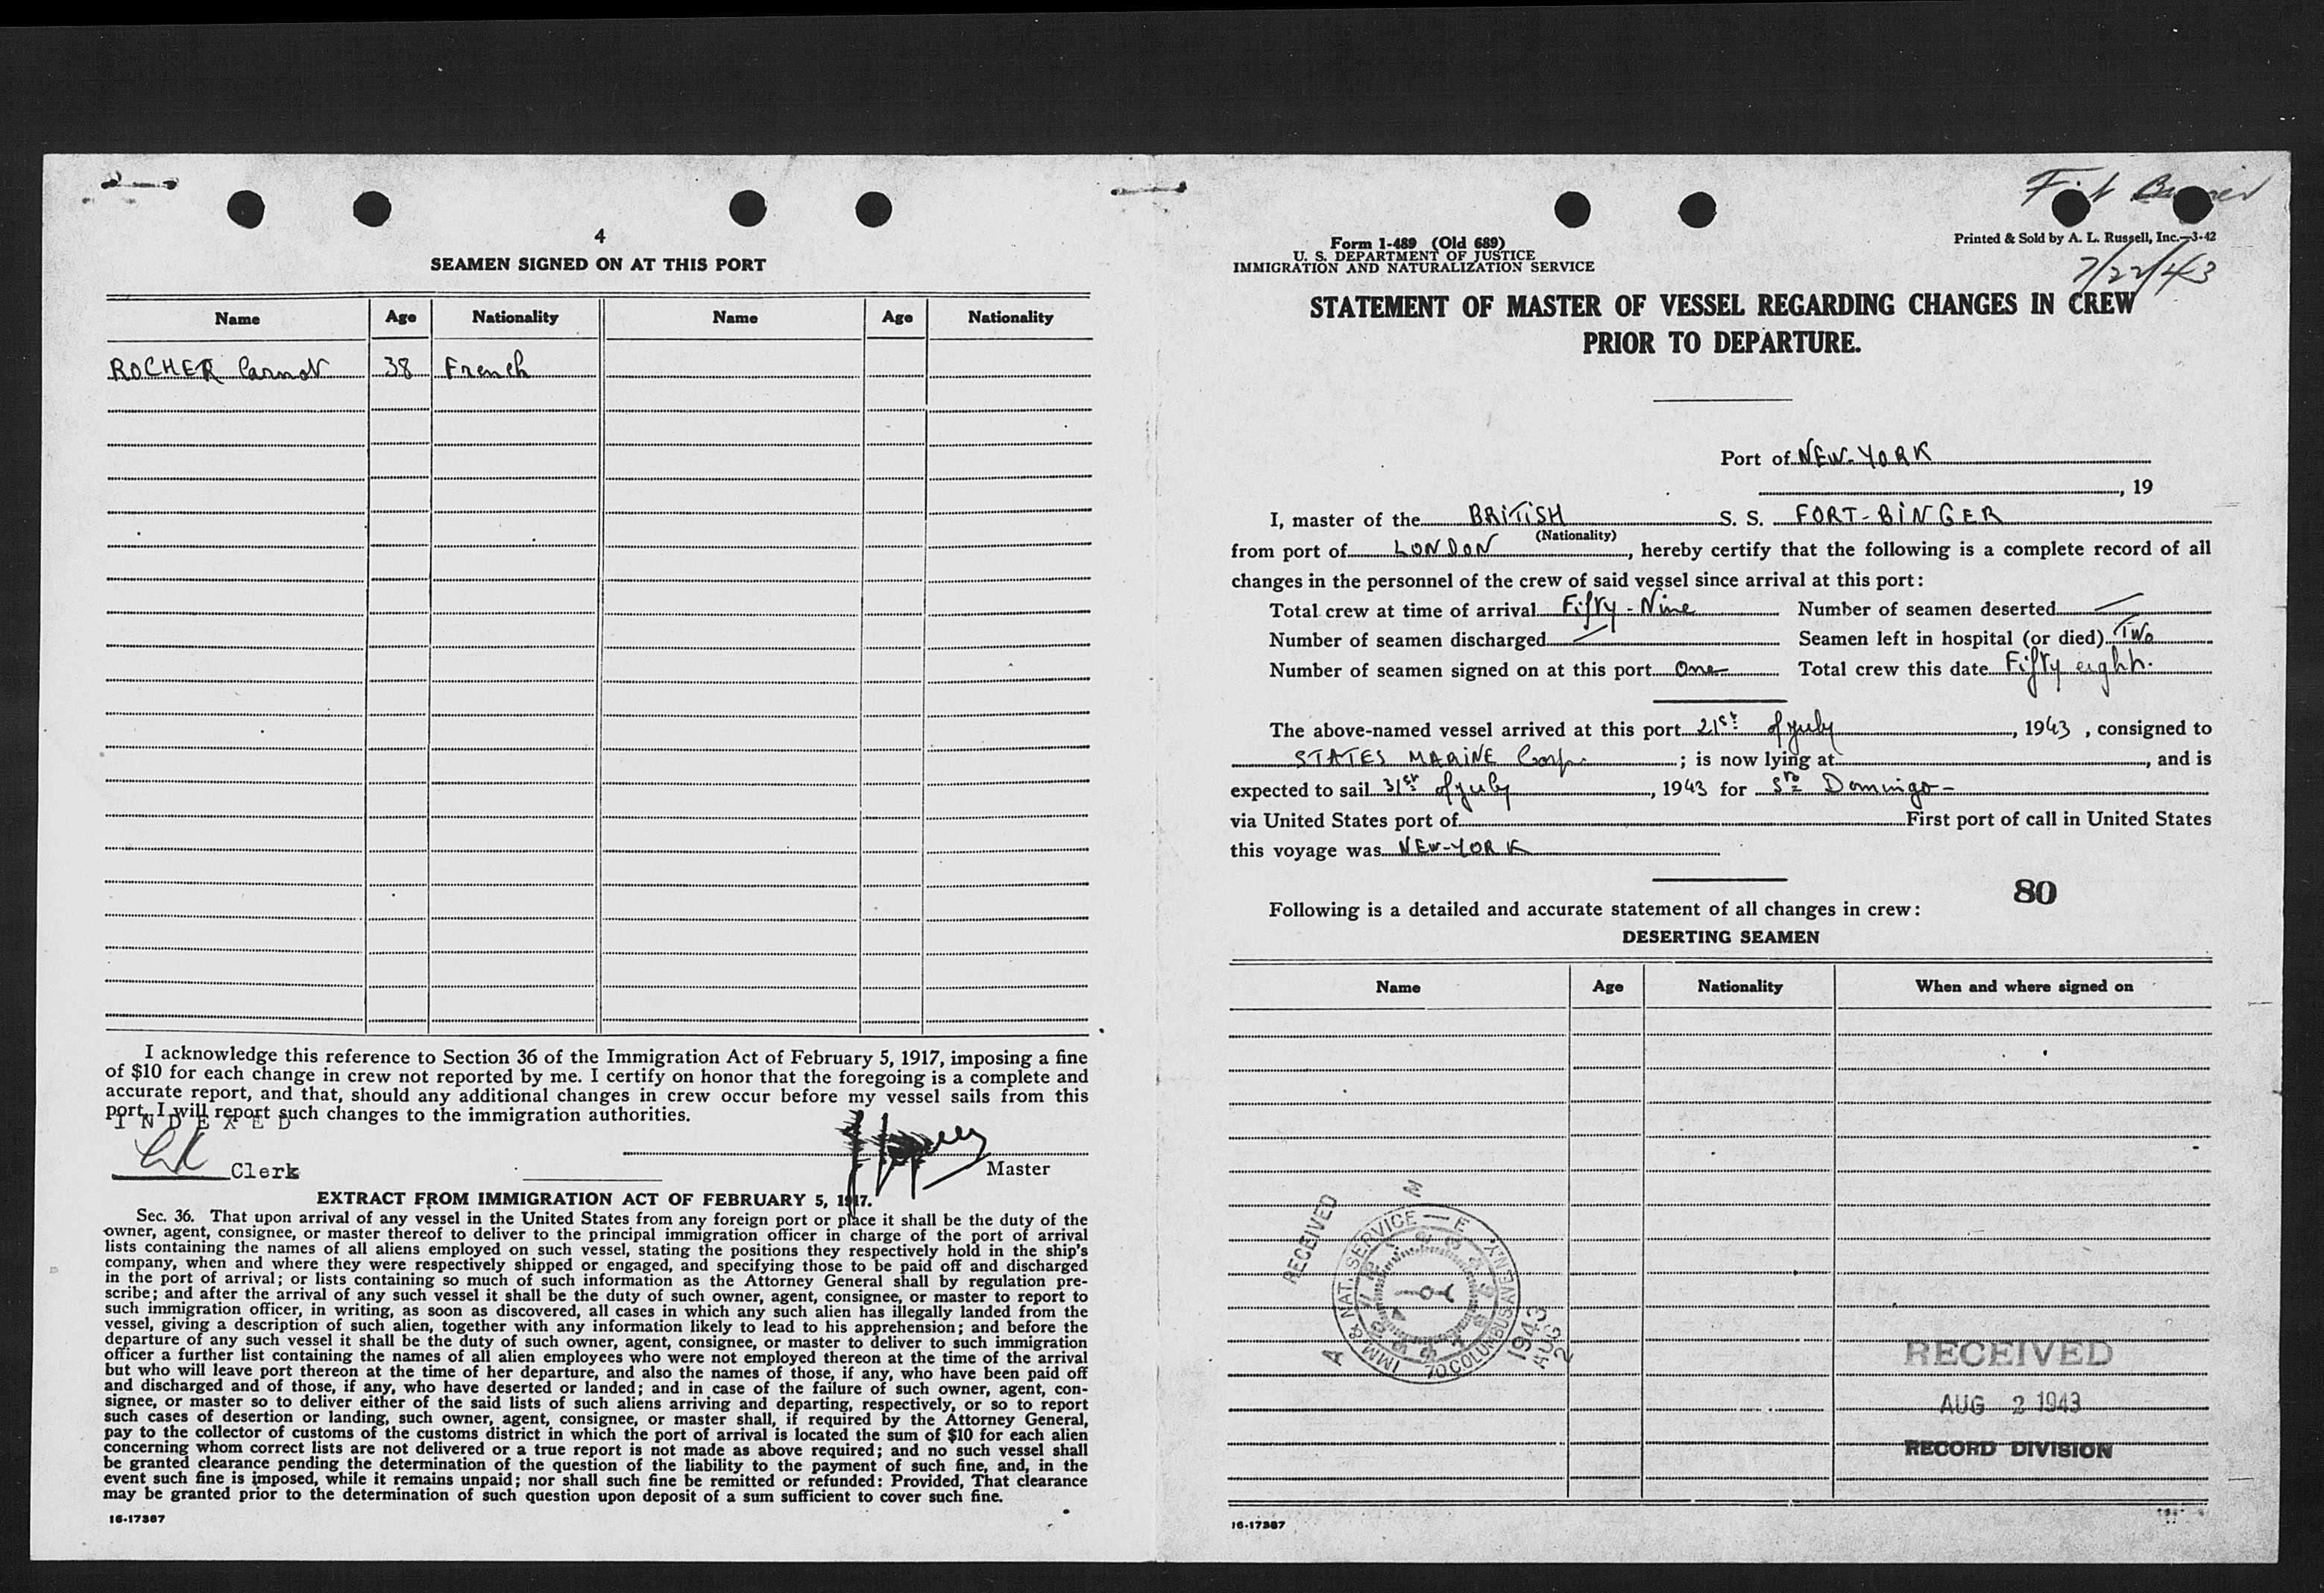 4
SEAMEN SIGNED ON AT THIS PORT
Name Age Nationality Name Age Nationality
ROCHER Carnot 38 French
I acknowledge this reference to Section 36 of the Immigration Act of February 5, 1917, imposing a fine
of $10 for each change in crew not reported by me. I certify on honor that the foregoing is a complete and
accurate report, and that, should any additional changes in crew occur before my vessel sails from this
port, I will report such changes to the immigration authorities.
INDEXED
Clerk
Master
EXTRACT FROM IMMIGRATION ACT OF FEBRUARY 5, 1917.
Sec. 36. That upon arrival of any vessel in the United States from any foreign port or place it shall be the duty of the
owner, agent, consignee, or master thereof to deliver to the principal immigration officer in charge of the port of arrival
lists containing the names of all aliens employed on such vessel, stating the positions they respectively hold in the ship's
company, when and where they were respectively shipped or engaged, and specifying those to be paid off and discharged
in the port of arrival; or lists containing so much of such information as the Attorney General shall by regulation pre-
scribe; and after the arrival of any such vessel it shall be the duty of such owner, agent, consignee, or master to report to
such immigration officer, in writing, as soon as discovered, all cases in which any such alien has illegally landed from the
vessel, giving a description of such alien, together with any information likely to lead to his apprehension; and before the
departure of any such vessel it shall be the duty of such owner, agent, consignee, or master to deliver to such immigration
officer a further list containing the names of all alien employees who were not employed thereon at the time of the arrival
but who will leave port thereon at the time of her departure, and also the names of those, if any, who have been paid off
and discharged and of those, if any, who have deserted or landed; and in case of the failure of such owner, agent, con-
signee, or master so to deliver either of the said lists of such aliens arriving and departing, respectively, or so to report
such cases of desertion or landing, such owner, agent, consignee, or master shall, if required by the Attorney General,
pay to the collector of customs of the customs district in which the port of arrival is located the sum of $10 for each alien
concerning whom correct lists are not delivered or a true report is not made as above required; and no such vessel shall
be granted clearance pending the determination of the question of the liability to the payment of such fine, and, in the
event such fine is imposed, while it remains unpaid; nor shall such fine be remitted or refunded: Provided, That clearance
may be granted prior to the determination of such question upon deposit of a sum sufficient to cover such fine.
16-17367
Form 1-489 (Old 689)
U. S. DEPARTMENT OF JUSTICE
IMMIGRATION AND NATURALIZATION SERVICE
Printed & Sold by A. L. Russell, Inc.—3-42
7/22/43
STATEMENT OF MASTER OF VESSEL REGARDING CHANGES IN CREW
PRIOR TO DEPARTURE.
Port of NEW-YORK
, 19
I, master of the BRITISH S. S. FORT-BINGER
(Nationality)
from port of LONDON, hereby certify that the following is a complete record of all
changes in the personnel of the crew of said vessel since arrival at this port:
Total crew at time of arrival Fifty-Nine Number of seamen deserted —
Number of seamen discharged — Seamen left in hospital (or died) Two
Number of seamen signed on at this port One Total crew this date Fifty eight.
The above-named vessel arrived at this port 21st of July, 1943, consigned to
STATES MARINE Corp.; is now lying at, and is
expected to sail 31st of July, 1943 for Sto Domingo-
via United States port of First port of call in United States
this voyage was NEW-YORK
80
Following is a detailed and accurate statement of all changes in crew:
DESERTING SEAMEN
Name Age Nationality When and where signed on
RECEIVED
IMM & NAT. SERVICE
70 COLUMBUS AVE NY
1943
AUG 2
RECEIVED
AUG 2 1943
RECORD DIVISION
16-17367